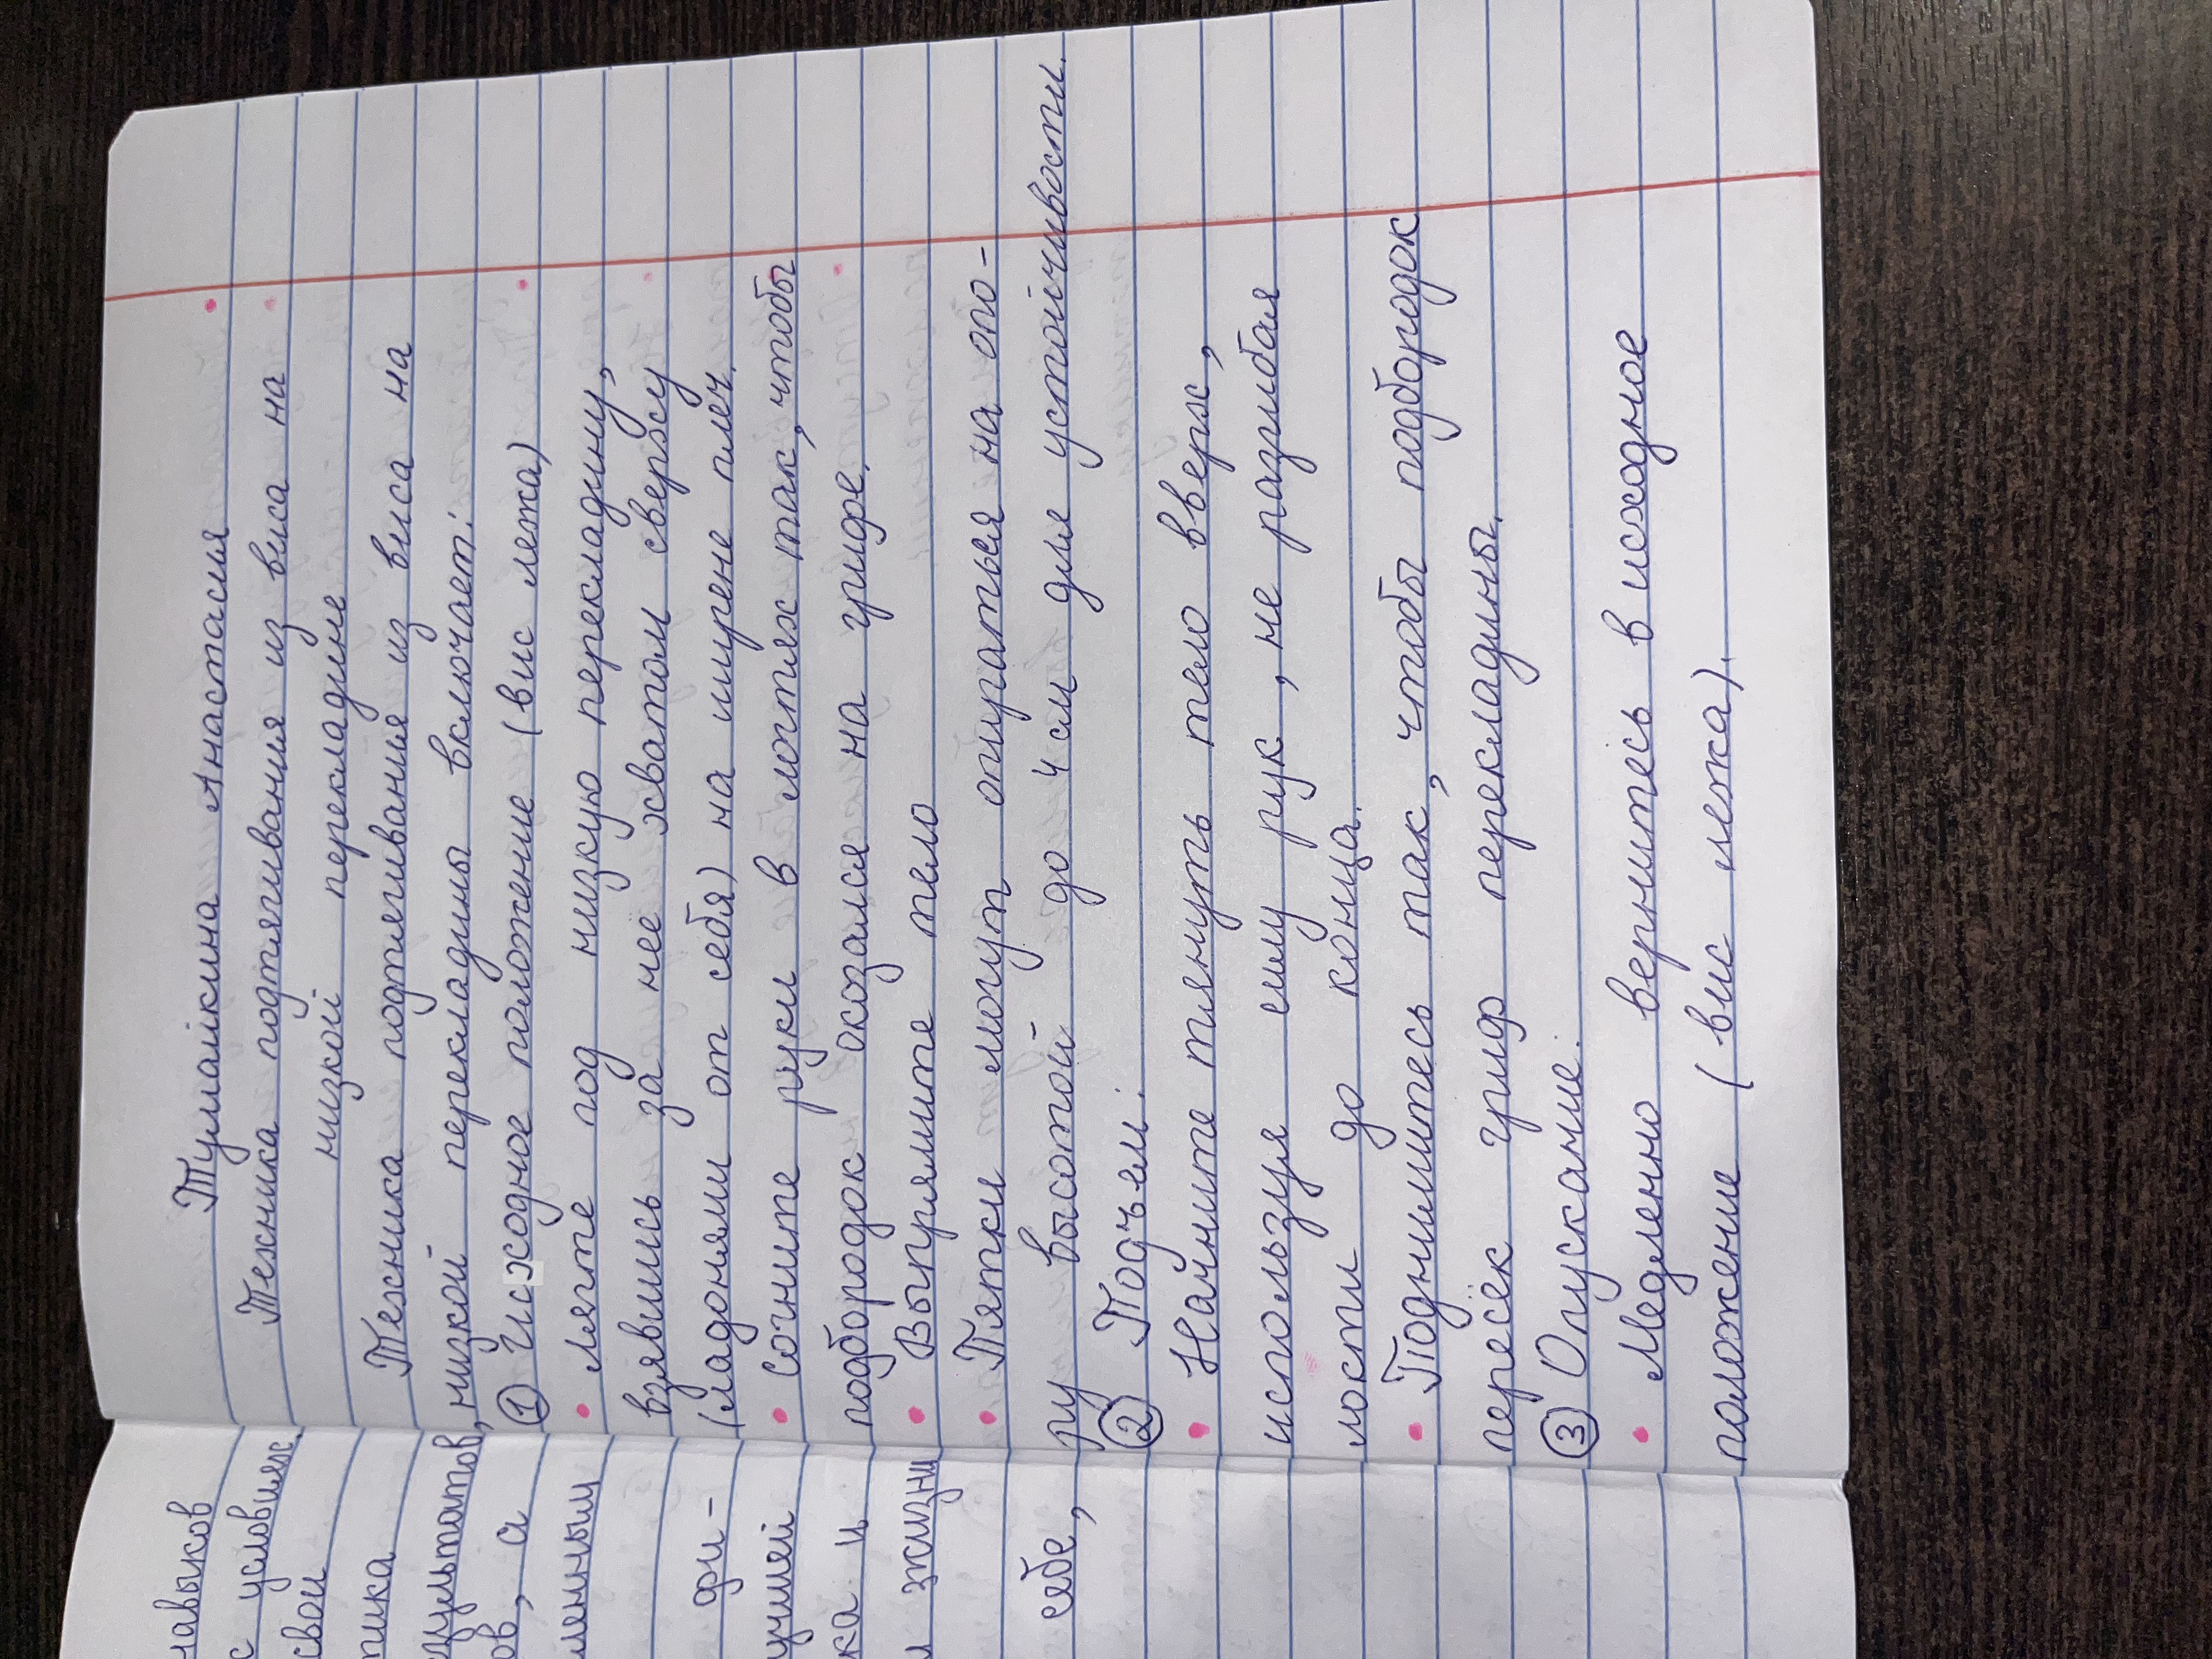 Тумайкина Анастасия
Техника подтягивания из виса на
низкой перекладине
Техника подтягивания из виса на
низкой перекладины включает:
① Исходное положение (вис лежа)
• лягте под низкую перекладину,
взявшись за нее хватом сверху
(ладонями от себя) на ширене плеч.
• Согните руки в логтях так, чтобы
подбородок оказался на грифе.
• Выпрямите тело
• Пятки могут опираться на опо-
ру высотой до 4 см для устойчивости.
② Подъем:
• Начните тянуть тело вверх,
используя силу рук, не разгибая
лости до конца.
• Поднимитесь так, чтобы подбородок
пересёк гриф перекладины.
③ Опускание:
• Медленно вернитесь в исходное
положение (вис лежа).
навыков
с условиях.
свои
тика
езультатов,
ов, а
ленным
фи-
учшей
ка и
и жизни
себе,